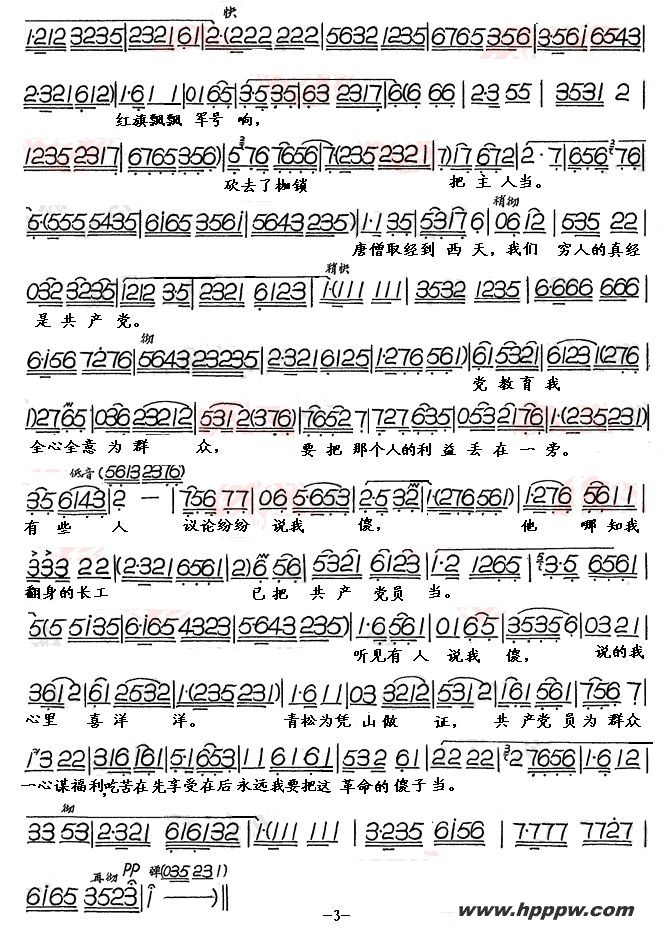 快
1·212 3235|2321 61|2·(222 222|5632 1235|6765 356|3·561 6543|
2·321 612)|1·6 1 1|01 65|3·5 35|63 2317|6(6 66|2·3 55|3531 2
红旗飘飘 军号 响,
1235 2317|6765 356)|5 76 7656|7(235 2317|6765 6)|7)17 672|2·7|656 76|
砍去了枷锁 把 主 人 当。
稍彻
5·(555 5435|6165 3561|5643 235)|1·1 35|5317 6|06 12|535 22|
唐僧取经到 西 天, 我们 穷人的真经
稍快
032 3235|1212 35|2321 6123|1·(111 111|3532 1235|6·666 666|
是 共 产 党。
彻
6·156 7276|5643 23235|2·321 6125|1·276 561)|61 5321|6123 1(276|
党 教 育 我
1)27 65|036 23212|5312(376)|7652 7|727 635|053 2176|1·(235 231)|
全心全意 为 群 众, 要 把 那个人的利 益 丢 在 一 旁。
低音(5613 2376)
35 6143|2 —|756 77|06 5·653|2·5 32|1(276 561)|1·276 5611|
有 些 人 议论纷纷 说我 傻, 他 哪知我
333 22|(2·321 6561|2) 6 56|5321 6123|1·2 1265|3·5 6561|
翻身的长工 已 把 共 产 党 员 当。
5(5 5135|6·165 4323|5643 235)|1·6 561|01 65|3535 6|0321|
听见有 人 说我 傻, 说的我
3612|61 2532|1·(235 231)|1·6 11|03 3212|5312|161 561|756 7|
心里 喜 洋 洋。 青松为凭 山 做 证, 共 产党 员 为 群众
1 3 22|316 161|5·1 653|11 6161|532 61|22 22|2 7656|1·6 12|
一心谋福利,吃苦在先享受在后 永远我要把这 革命的傻子当。
彻
33 53|2·321 616132|1·(111 111|3·235 6156|7·777 7727|
再彻 PP 弹(035 231)
6165 3523|1 —)‖
-3-
www.hpppw.com